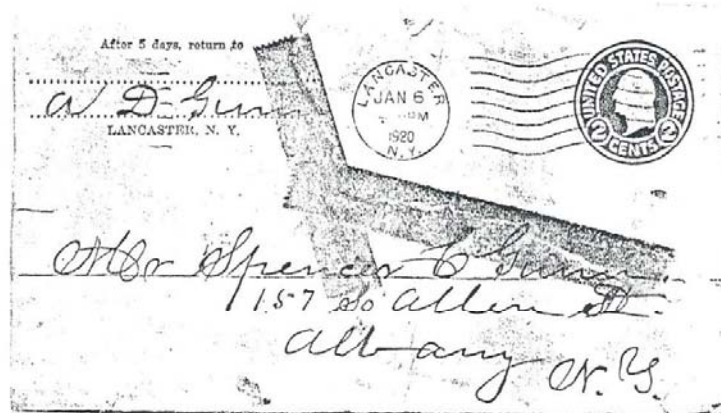 After 5 days, return to
A D Gunn
LANCASTER, N. Y.
LANCASTER
JAN 6
M
1920
N.Y.
UNITED STATES POSTAGE
2 CENTS 2
Mr Spencer C Gunn
157 So Allen St.
Albany N.Y.